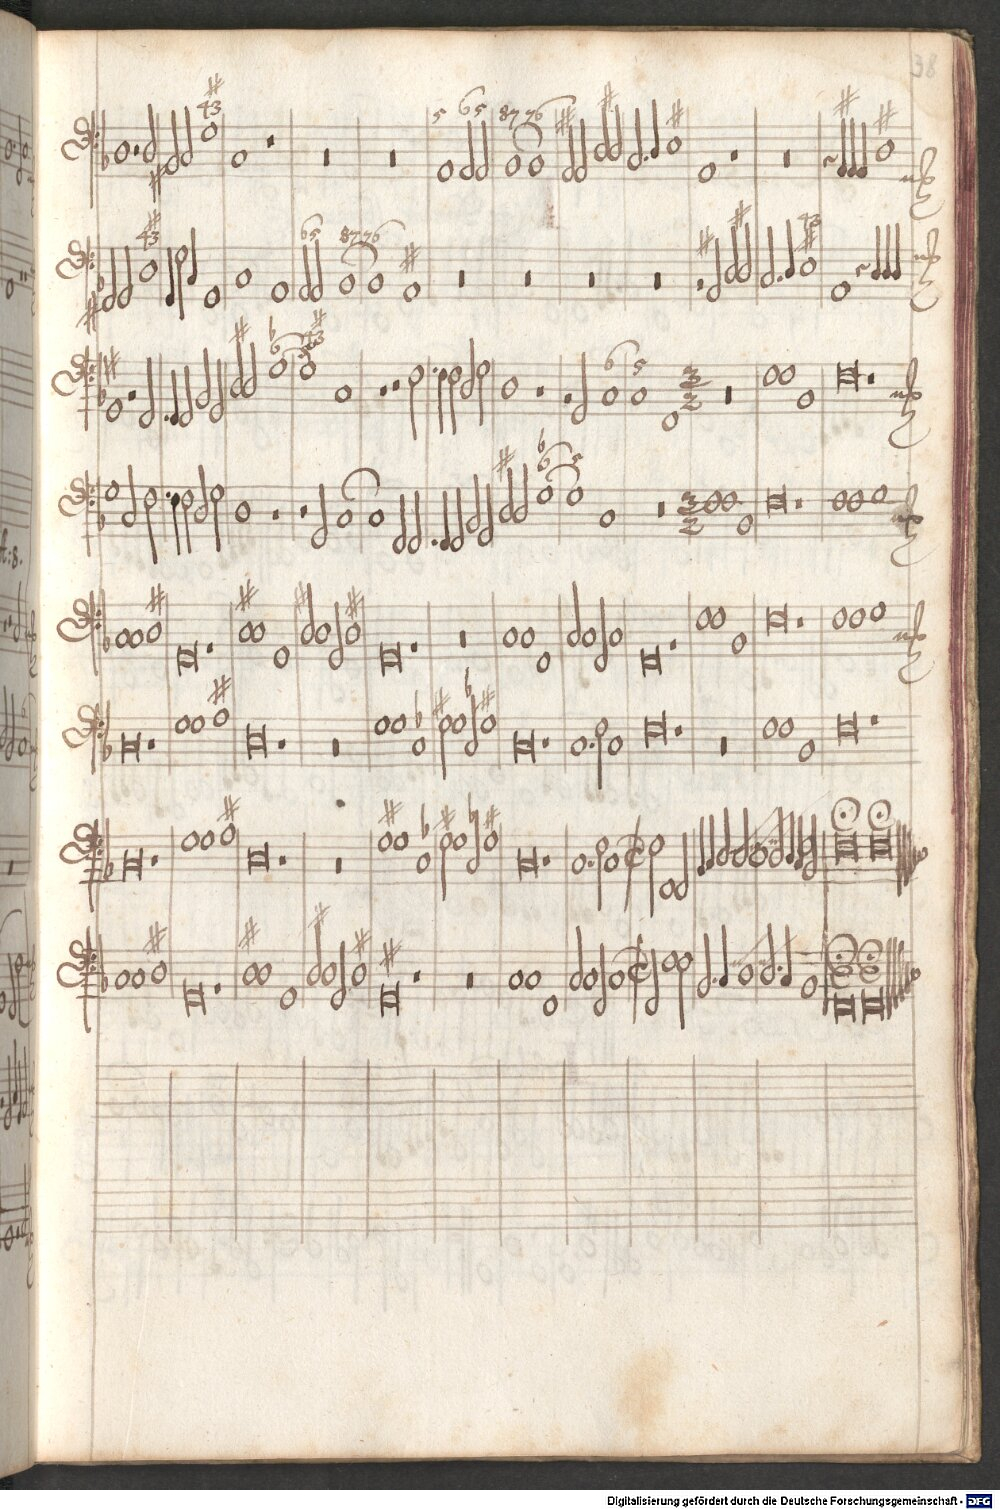 38
43
5 65 87 76
43 65 87 76 43
6 43 6 5 3 2
6 5 3 2
Digitalisierung gefördert durch die Deutsche Forschungsgemeinschaft - DFG